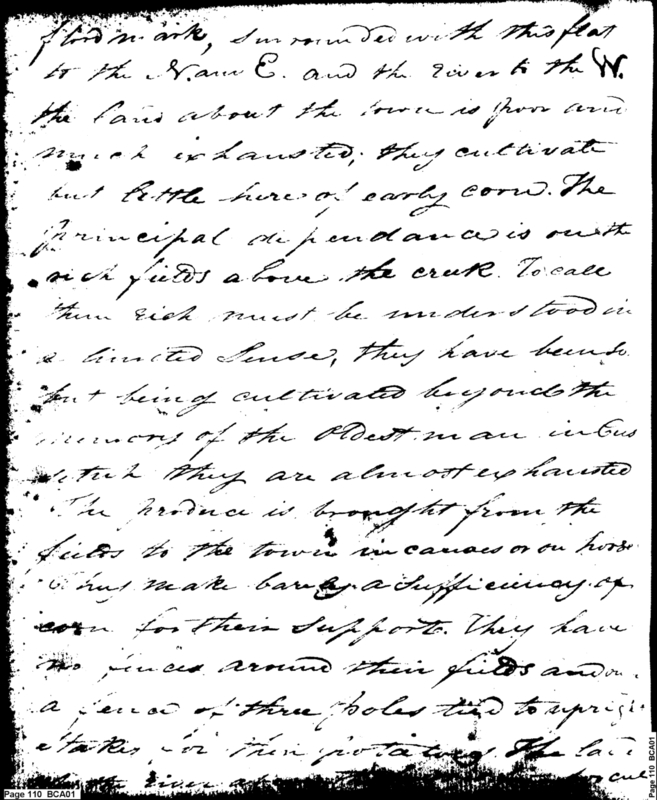 flood mark, surrounded with this flat
to the N. and E. and the river to the W.
the land about the town is poor and
much exhausted; they cultivate
but little here of early corn. The
principal dependance is on the
rich fields above the creek. To call
them rich must be understood in
a limited Sense, they have been so
but being cultivated beyond the
memory of the Oldest man in Cus
setuh they are almost exhausted
The produce is brought from the
fields to the town in canoes or on horses
They make barely a Sufficiency of
corn for their Support. They have
no fences around their fields and
a fence of three poles tied to upright
stakes, for their potatoes. The land
the river
Page 110 BCA01
Page 110 BCA01